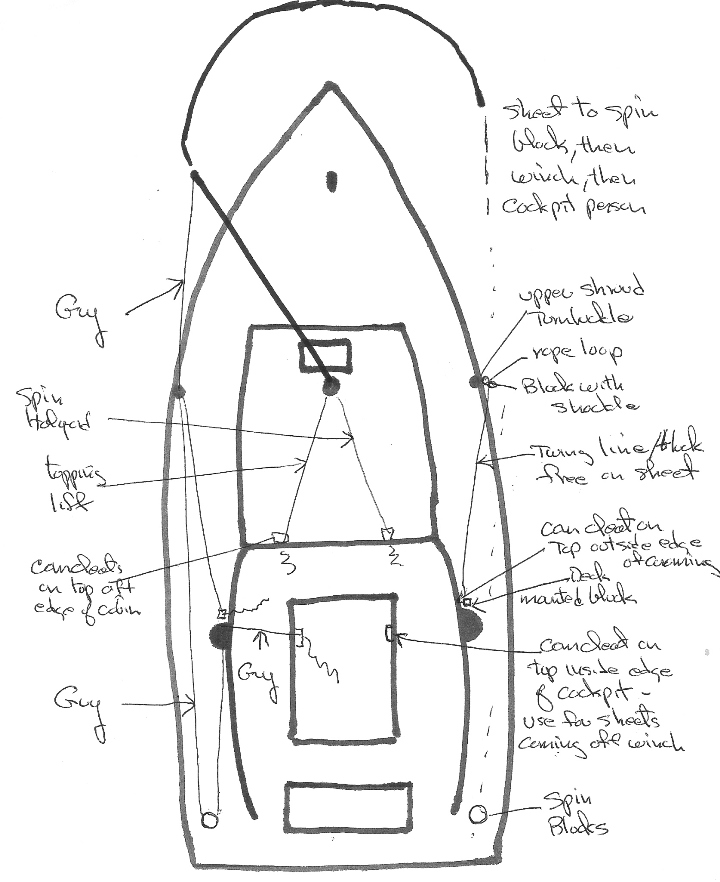 sheet to spin
block, then
winch, then
cockpit person
upper shroud
Turnbuckle
rope loop
Block with
shackle
Twing line/block
free on sheet
cam cleat on
Top outside edge
of coaming
Deck
mounted block
cam cleat on
top inside edge
of cockpit -
use for sheets
coming off winch
Spin
Blocks
Guy
Spin
Halyard
topping
lift
camcleats
on top aft
edge of cabin
Guy
Guy